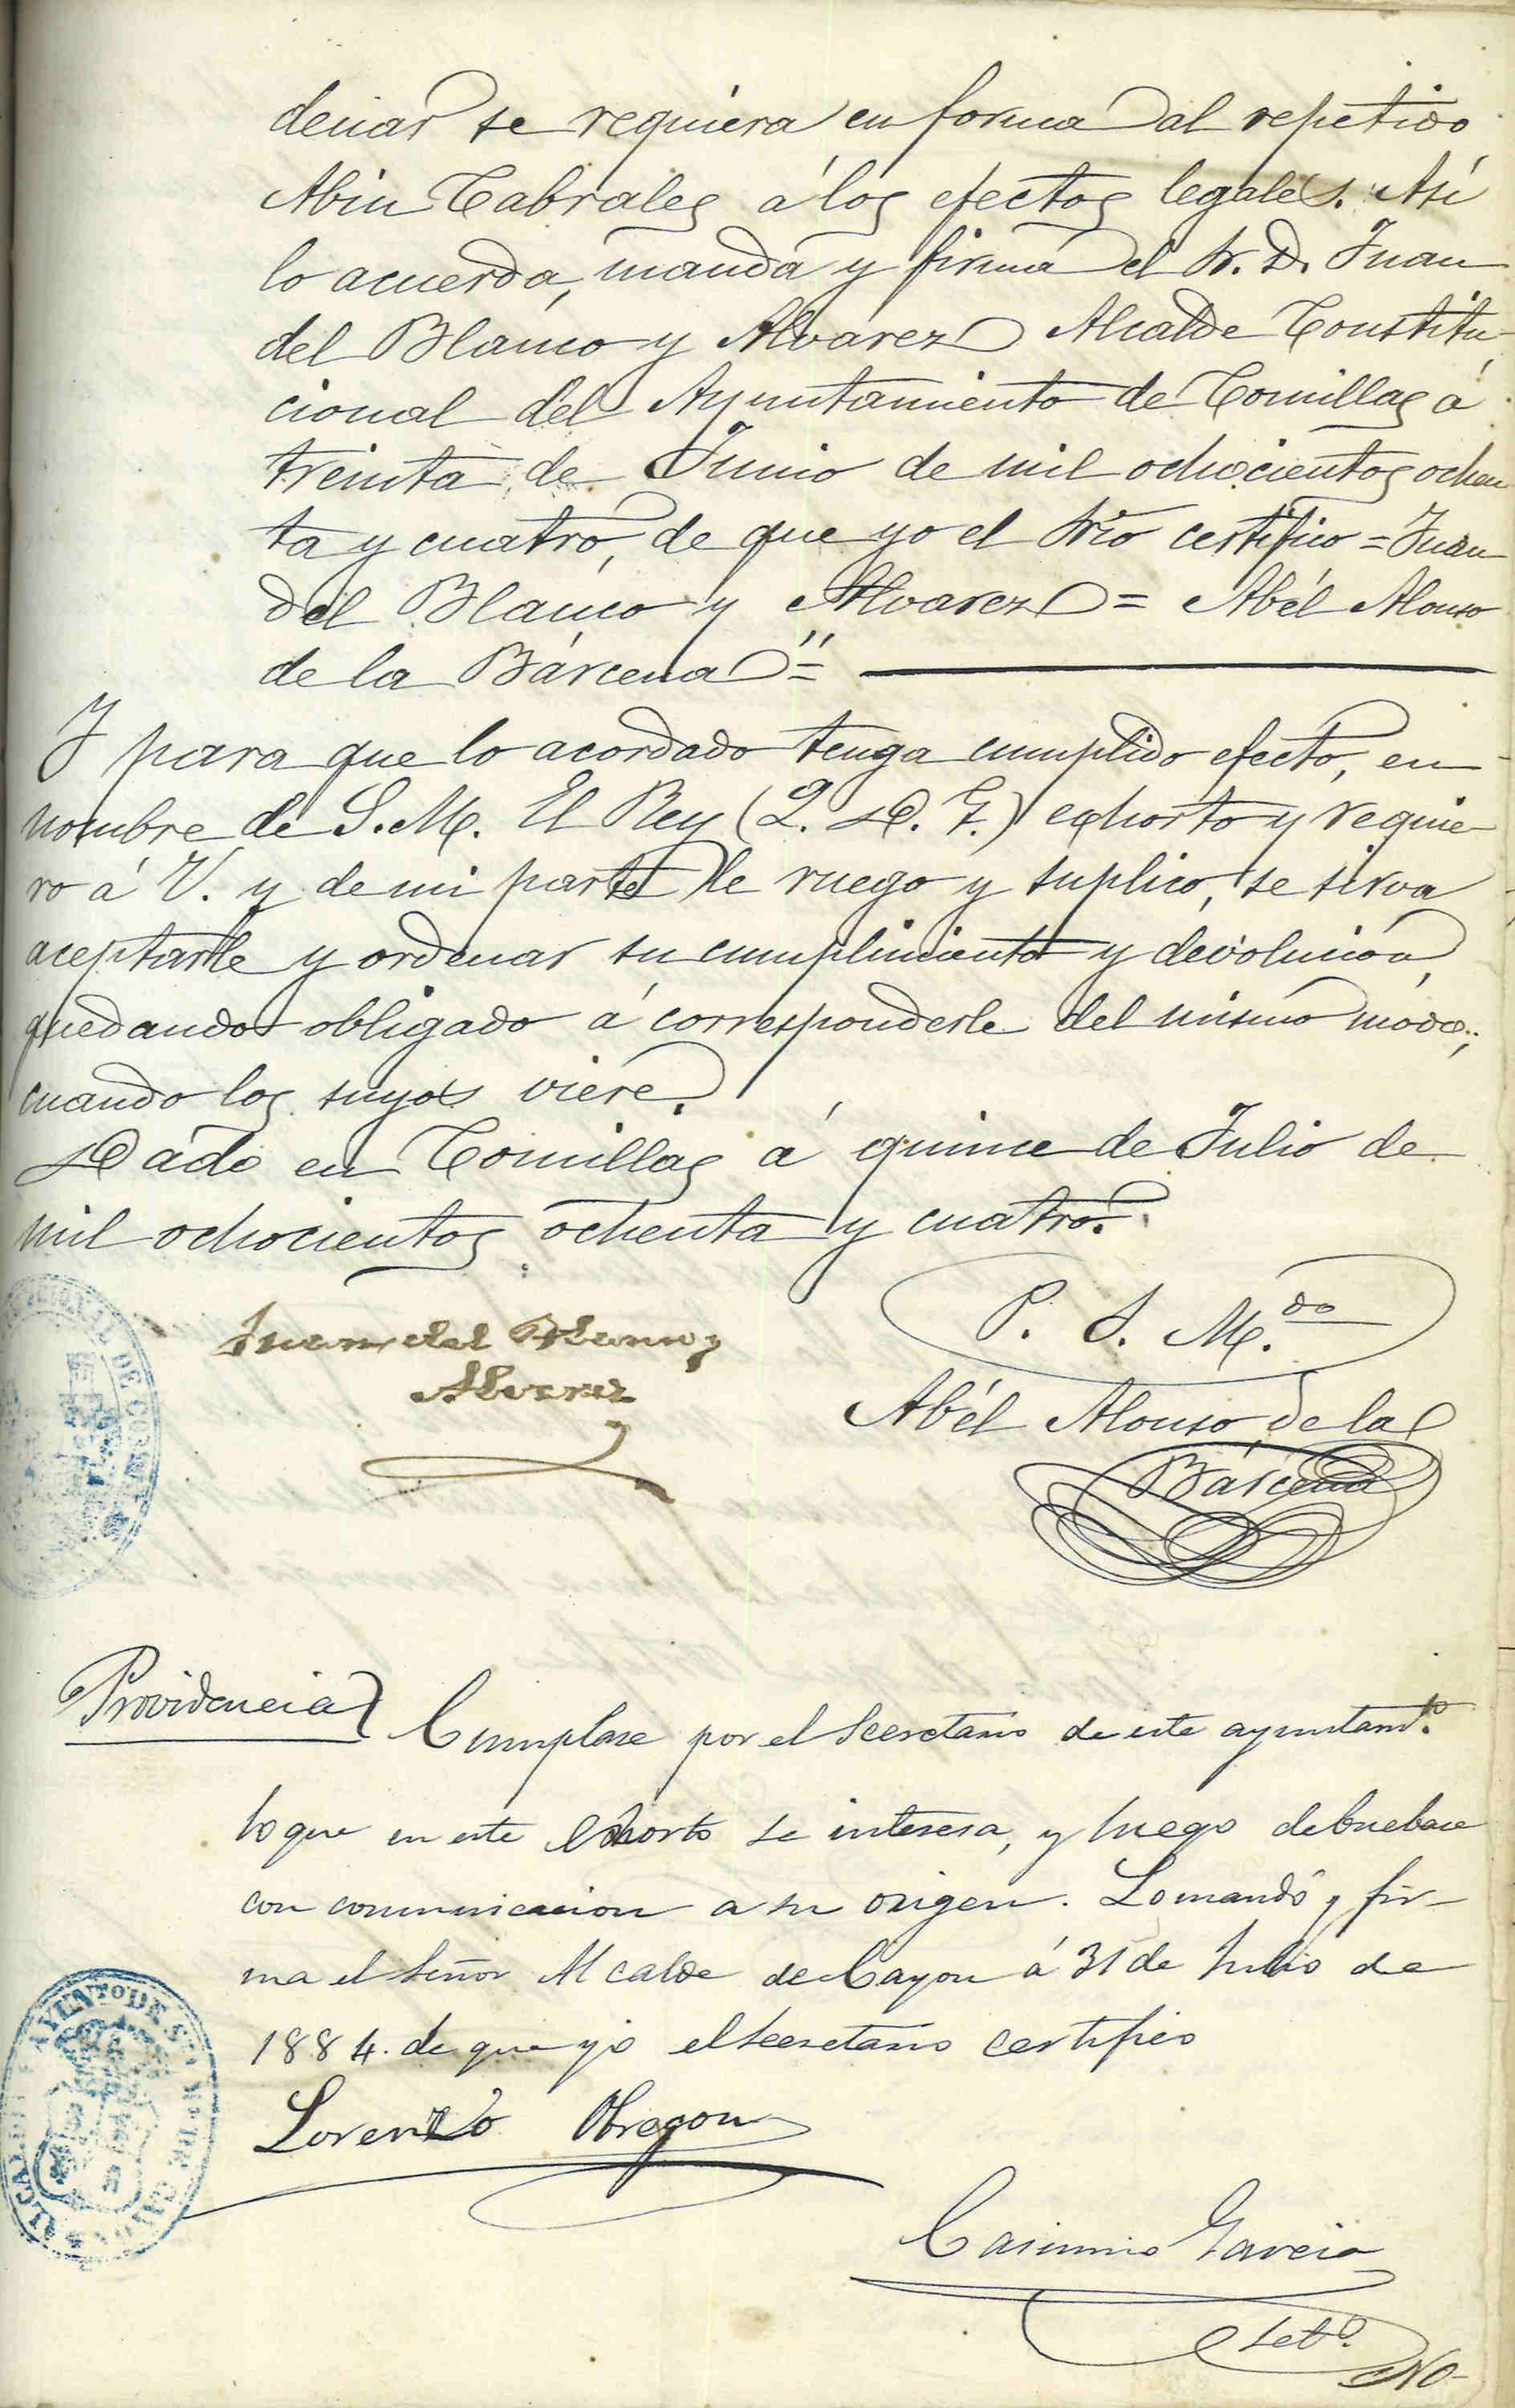 denar se requiera en forma al repetido
Abin Cabrales á los efectos legales. Así
lo acuerda, manda y firma el Sr. D. Juan
del Blanco y Alvarez Alcalde Constitu-
cional del Ayuntamiento de Comillas á
treinta de Junio de mil ochocientos ochen
ta y cuatro, de que yo el Srio certifico = Juan
del Blanco y Alvarez = Abél Alonso
de la Bárcena" =
Y para que lo acordado tenga cumplido efecto, en
nombre de S. M. El Rey (Q. D. G.) exhorto y requie-
ro á V. y de mi parte le ruego y suplico, se sirva
aceptarle y ordenar su cumplimiento y devolucion,
quedando obligado á corresponderle del mismo modo,
cuando los suyos viere.
Dado en Comillas á quince de Julio de
mil ochocientos ochenta y cuatro.
Juan del Blanco y
Alvarez
P. S. M.do
Abél Alonso de la
Bárcena
Providencia
Cumplase por el Secretario de este ayuntamto.
lo que en este exhorto se interesa, y luego debuelbase
con comunicacion a su origen. Lo mandó y fir-
ma el Señor Alcalde de Cayon á 31 de Julio de
1884. de que yo el Secretario certifico
Lorenzo Obregon
ALCALDIA AYUNTO DE STA Ma DE CAYON
Casimiro Garcia
Seto.
No-